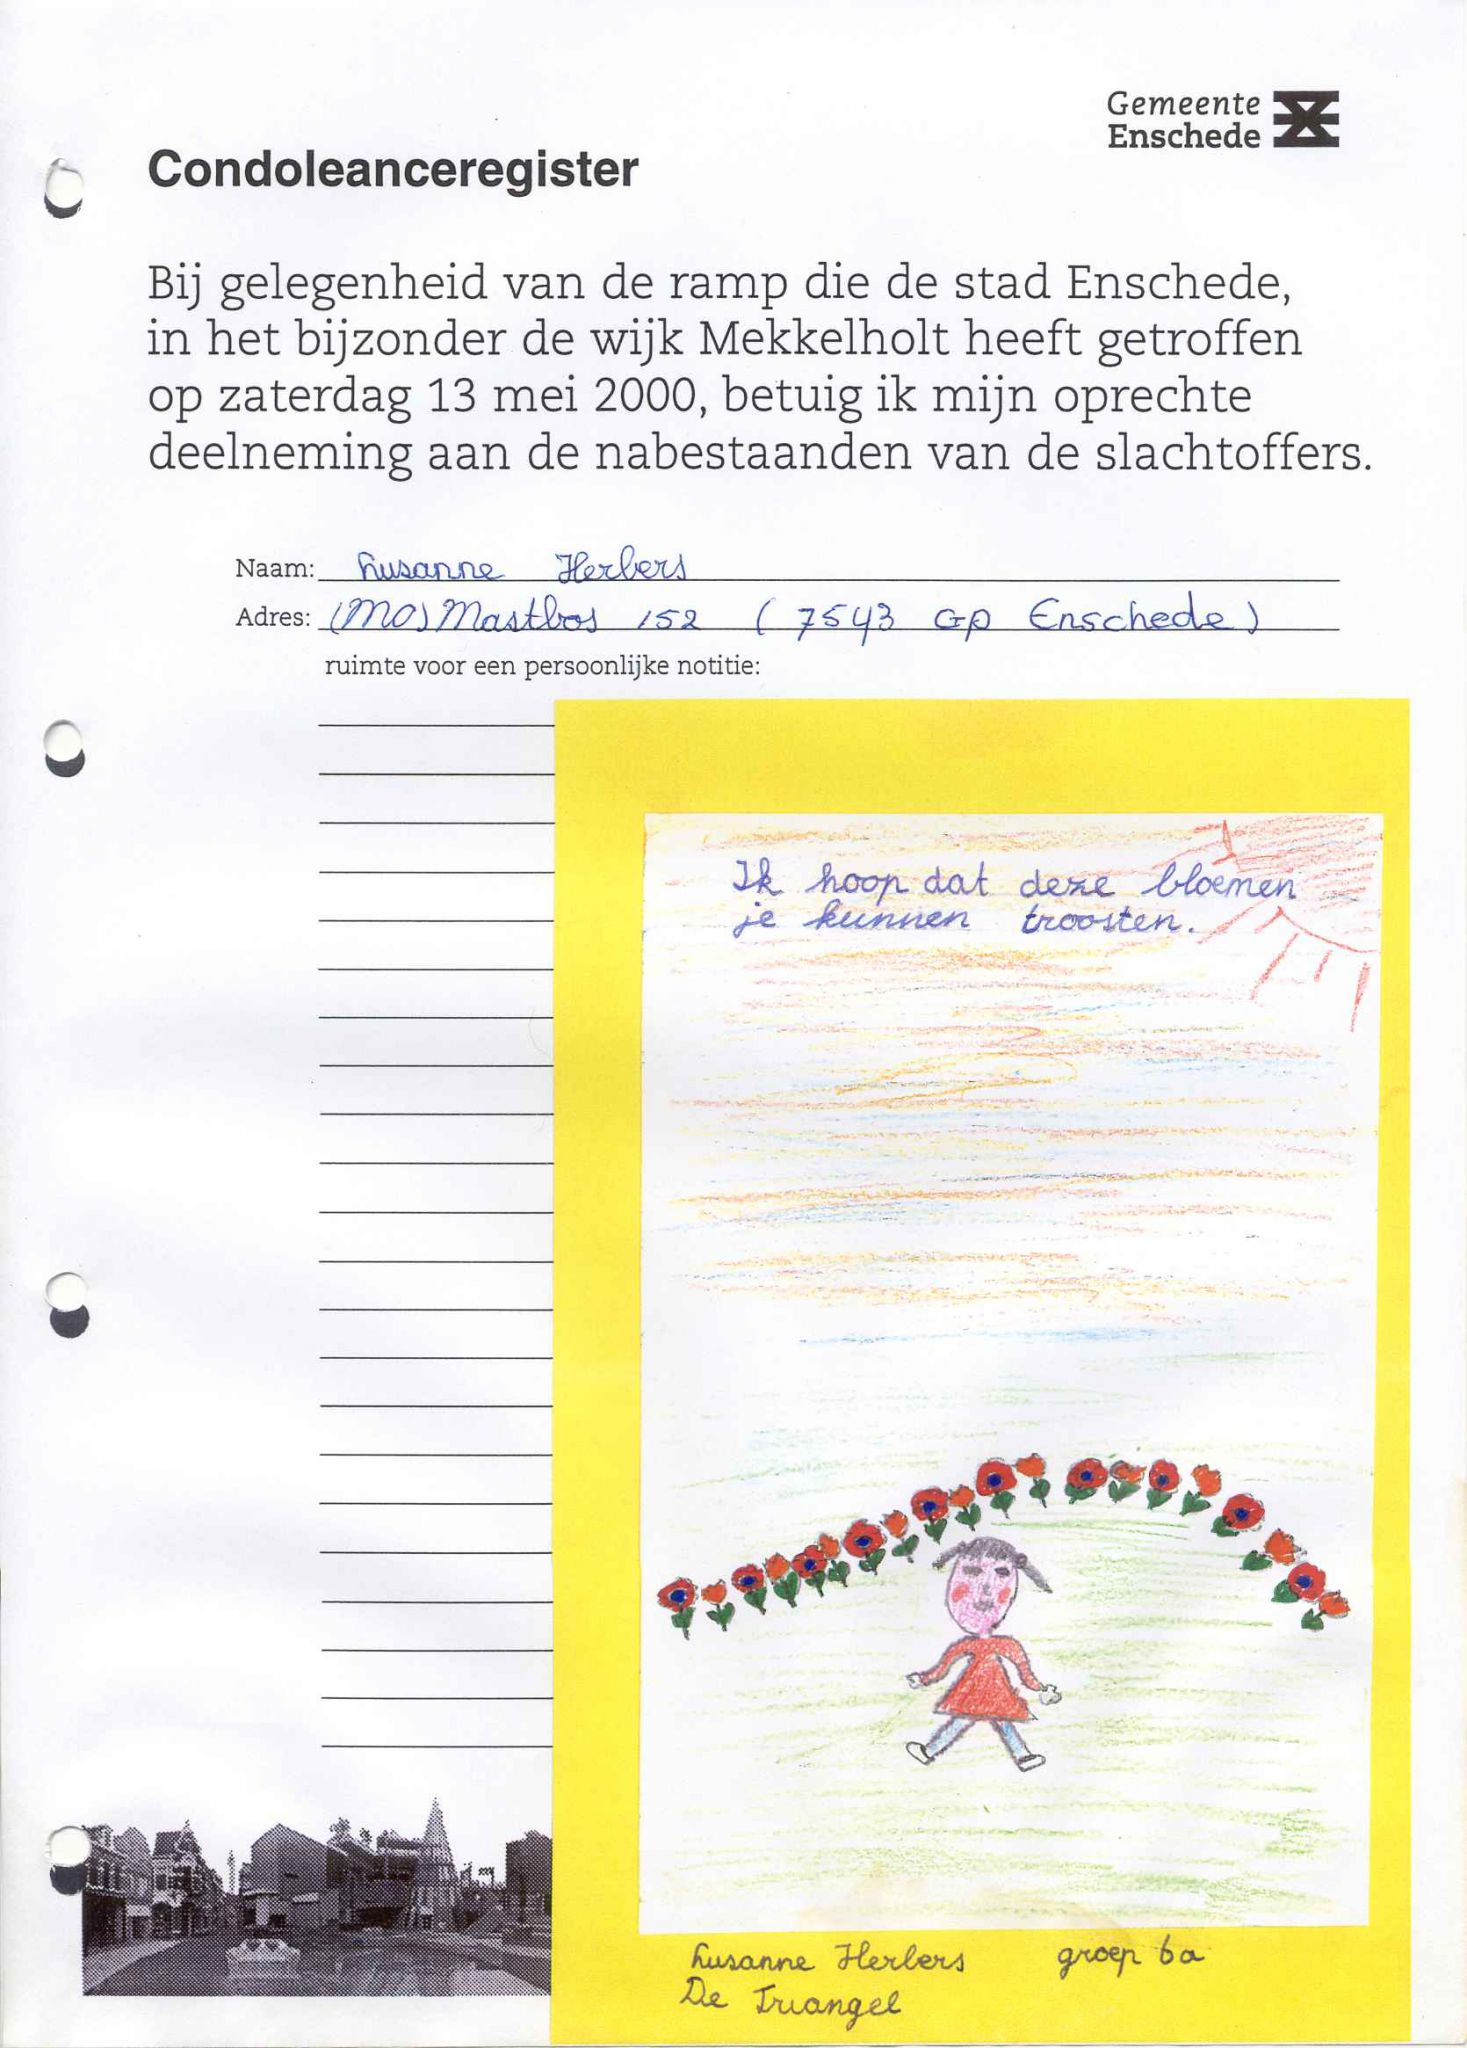 Gemeente
Enschede
Condoleanceregister
Bij gelegenheid van de ramp die de stad Enschede,
in het bijzonder de wijk Mekkelholt heeft getroffen
op zaterdag 13 mei 2000, betuig ik mijn oprechte
deelneming aan de nabestaanden van de slachtoffers.
Naam: Susanne Herbers
Adres: (MO) Mastbos 152 (7543 GP Enschede)
ruimte voor een persoonlijke notitie:
Ik hoop dat deze bloemen
je kunnen troosten.
Susanne Herbers groep 6a
De Triangel